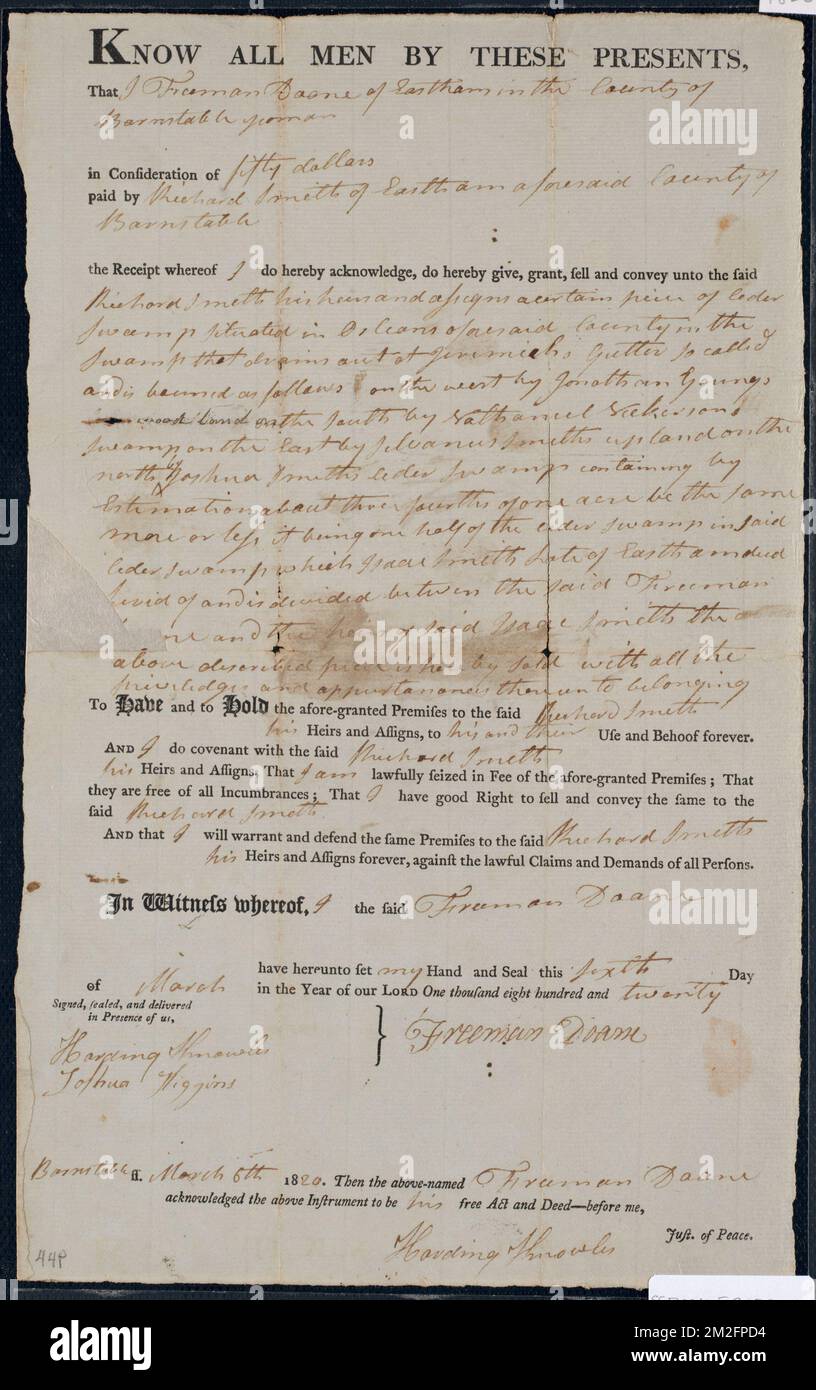 KNOW ALL MEN BY THESE PRESENTS,
That I Freeman Doane of Eastham in the County of
Barnstable yoman
in Conſideration of fifty dollars
paid by Richard Smeth of Eastham aforesaid County of
Barnstable
the Receipt whereof I do hereby acknowledge, do hereby give, grant, ſell and convey unto the ſaid
Richard Smeth his heirs and assigns a certain piece of Ceder
Swamp situated in Orleans aforesaid County in the
Swamp that drains out at Jeremiahs Gutter so called
and is bounded as follows on the west by Jonathan Youngs
wood land on the South by Nathaniel Nickersons
swamp on the East by Silvanus Smeths upland on the
north by Joshua Smeths ceder swamp containing by
Estimation about three fourths of one acre be the same
more or less it being one half of the ceder swamp in said
ceder swamp which Isaac Smeth Late of Eastham deid
and is divided between the said Freeman
and the heirs of said Isaac Smeths the
above described piece is hereby sold with all the
priveledges and appurtanances thereunto belonging
To Have and to Hold the afore-granted Premiſes to the ſaid Richard Smeth
his Heirs and Aſſigns, to his and their Uſe and Behoof forever.
AND I do covenant with the ſaid Richard Smeth
his Heirs and Aſſigns, That I am lawfully ſeized in Fee of the afore-granted Premiſes; That
they are free of all Incumbrances; That I have good Right to ſell and convey the ſame to the
ſaid Richard Smeth
AND that I will warrant and defend the ſame Premiſes to the ſaid Richard Smeth
his Heirs and Aſſigns forever, againſt the lawful Claims and Demands of all Perſons.
In Witneſs whereof, I the ſaid Freeman Doane
have hereunto ſet my Hand and Seal this sixth Day
of March in the Year of our LORD One thouſand eight hundred and twenty
Signed, ſealed, and delivered
in Preſence of us,
Harding Knowles
Joshua Higgins
} Freeman Doane
Barnstable ſſ. March 6th 1820. Then the above-named Freeman Doane
acknowledged the above Inſtrument to be his free Act and Deed—before me,
Harding Knowles Juſt. of Peace.
44P
alamy
Image ID: 2M2FPD4
www.alamy.com